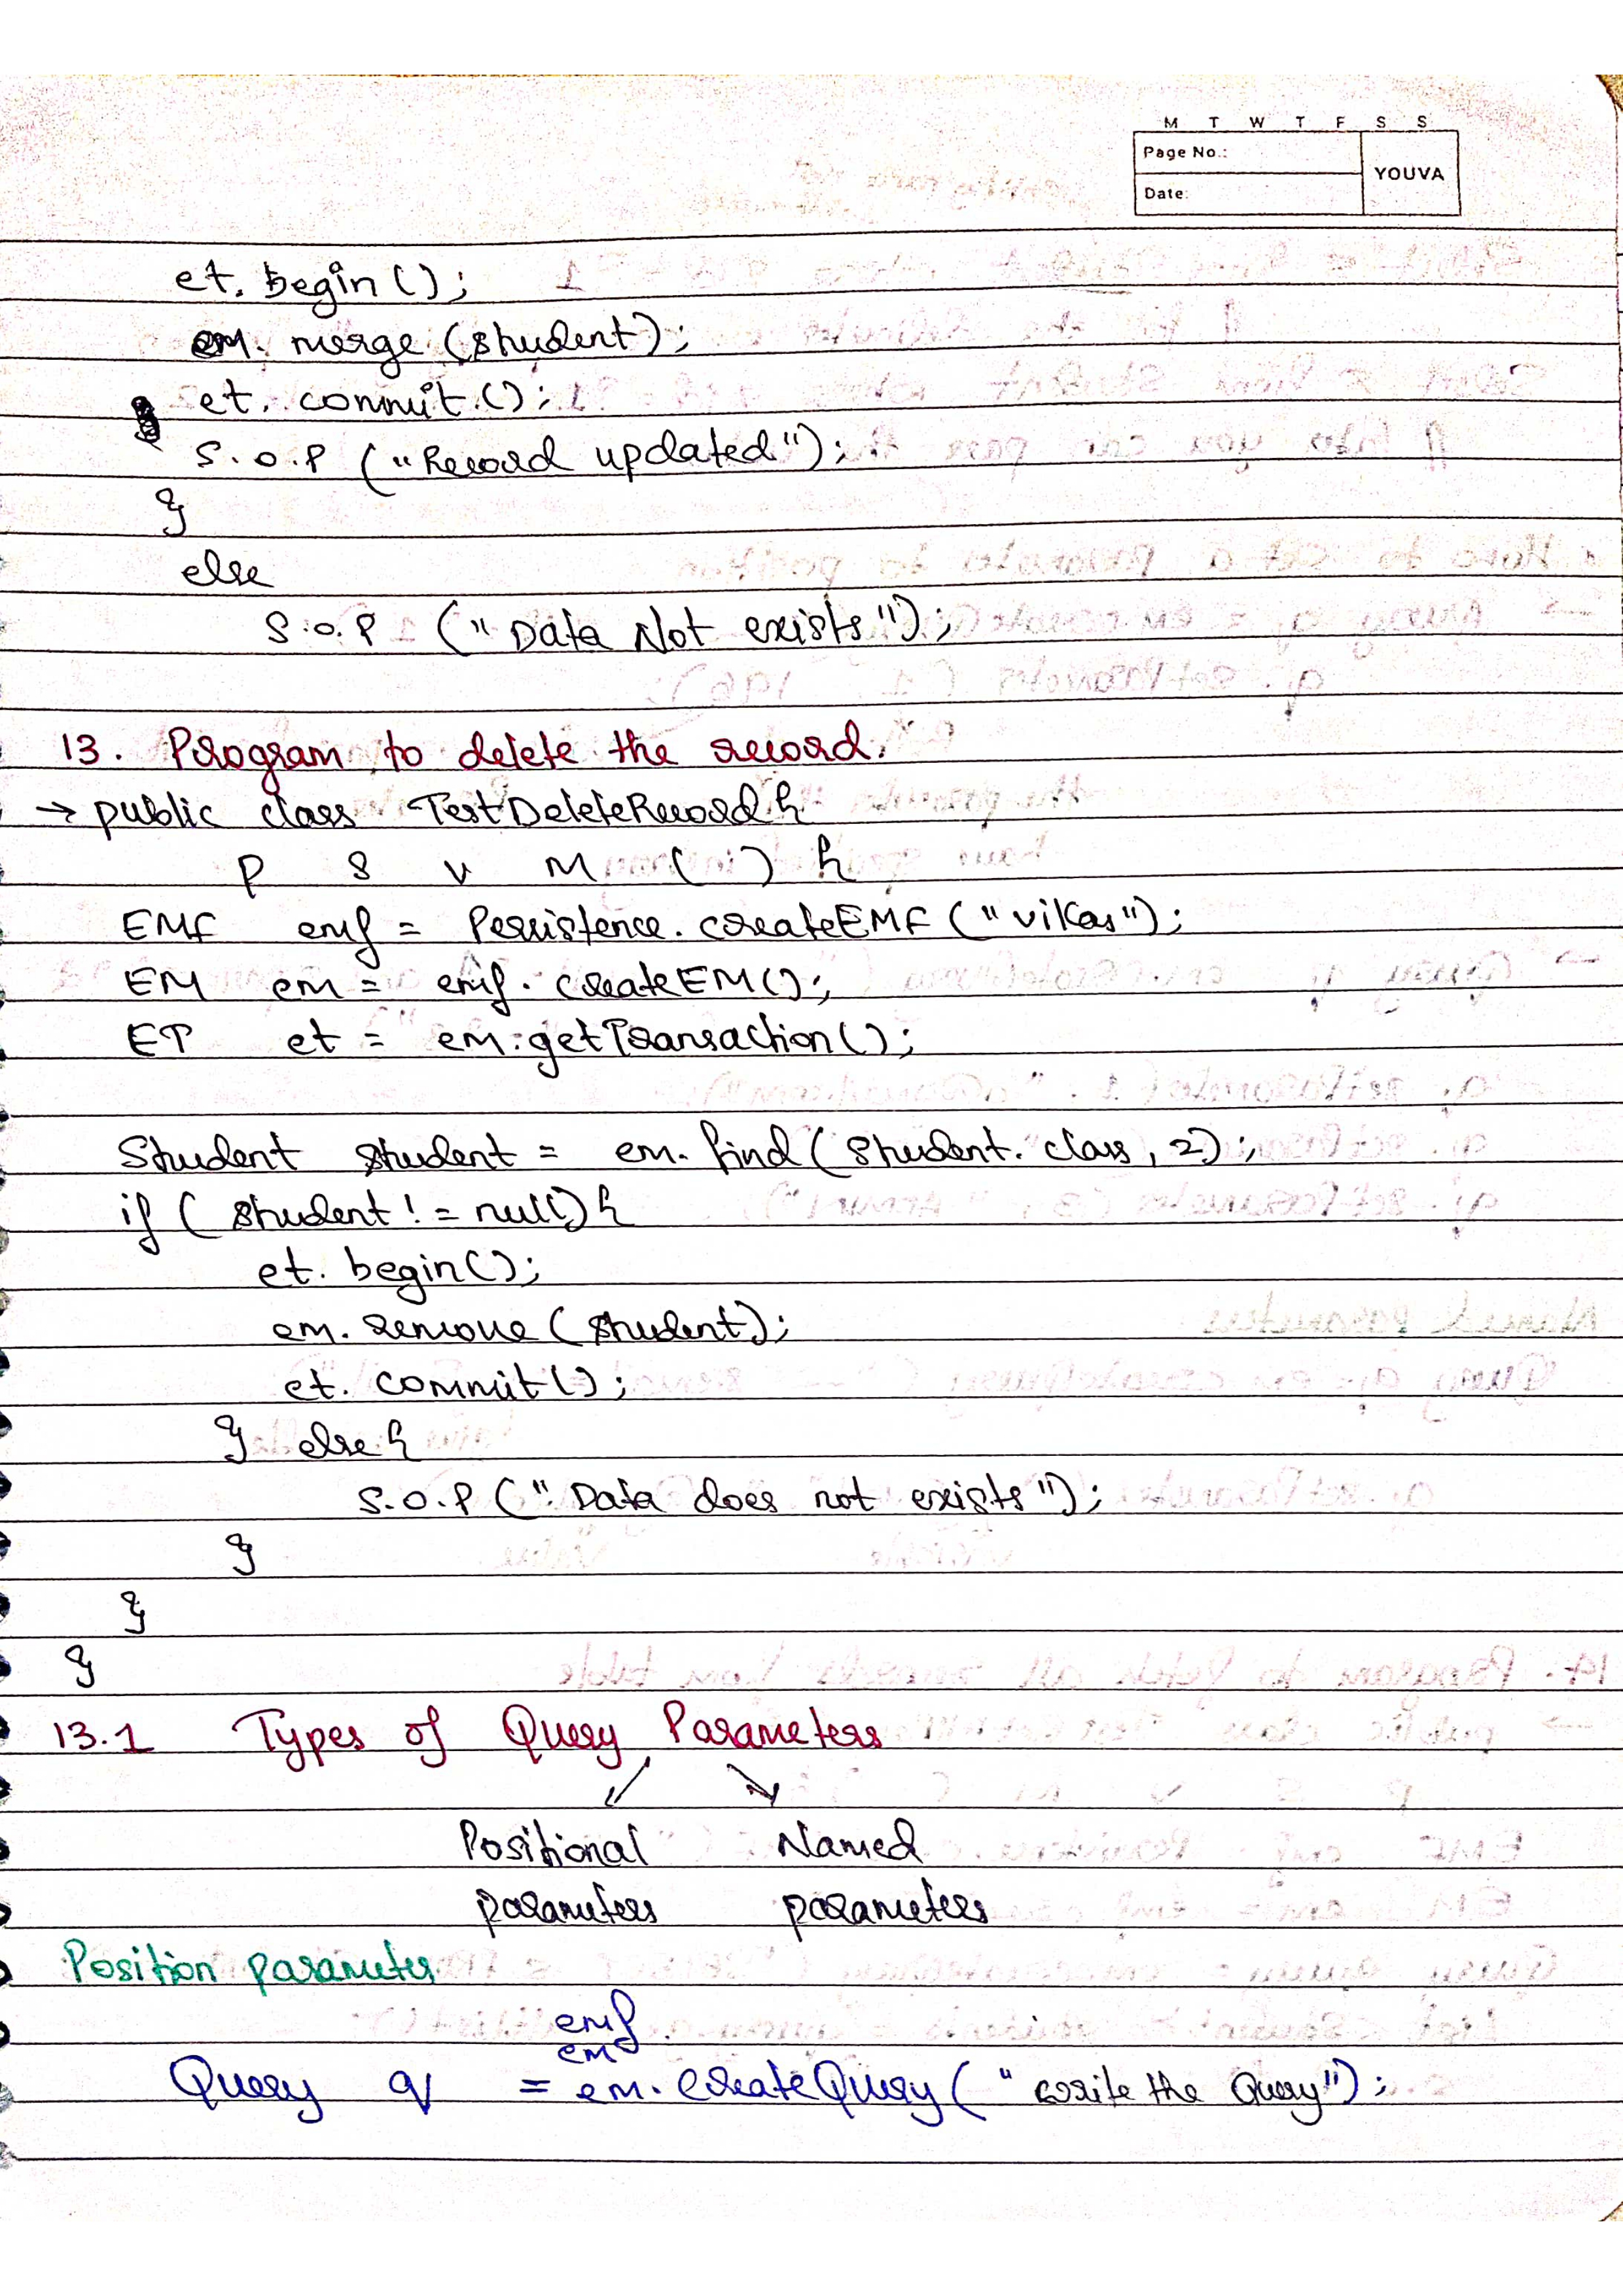 M T W T F S S
Page No.:
YOUVA
Date:
et. begin();
em. merge (student);
et. commit.();
S.O.P ("Record updated");
}
else
S.O.P ("Data Not exists");
13. Program to delete the record.
→ public class TestDeleteRecord {
P S V M ( ) {
EMF emf = Persistence. createEMF ("vikas");
EM em = emf. createEM();
ET et = em.getTransaction();
Student student = em. find (student. class, 2);
if ( student != null) {
et. begin();
em. remove (student);
et. commit();
} else {
S.O.P ("Data does not exists");
}
}
}
13.1 Types of Query Parameters
Positional Named
parameters parameters
Position parameter
emf
em
Query q = em. createQuery ("write the Query");